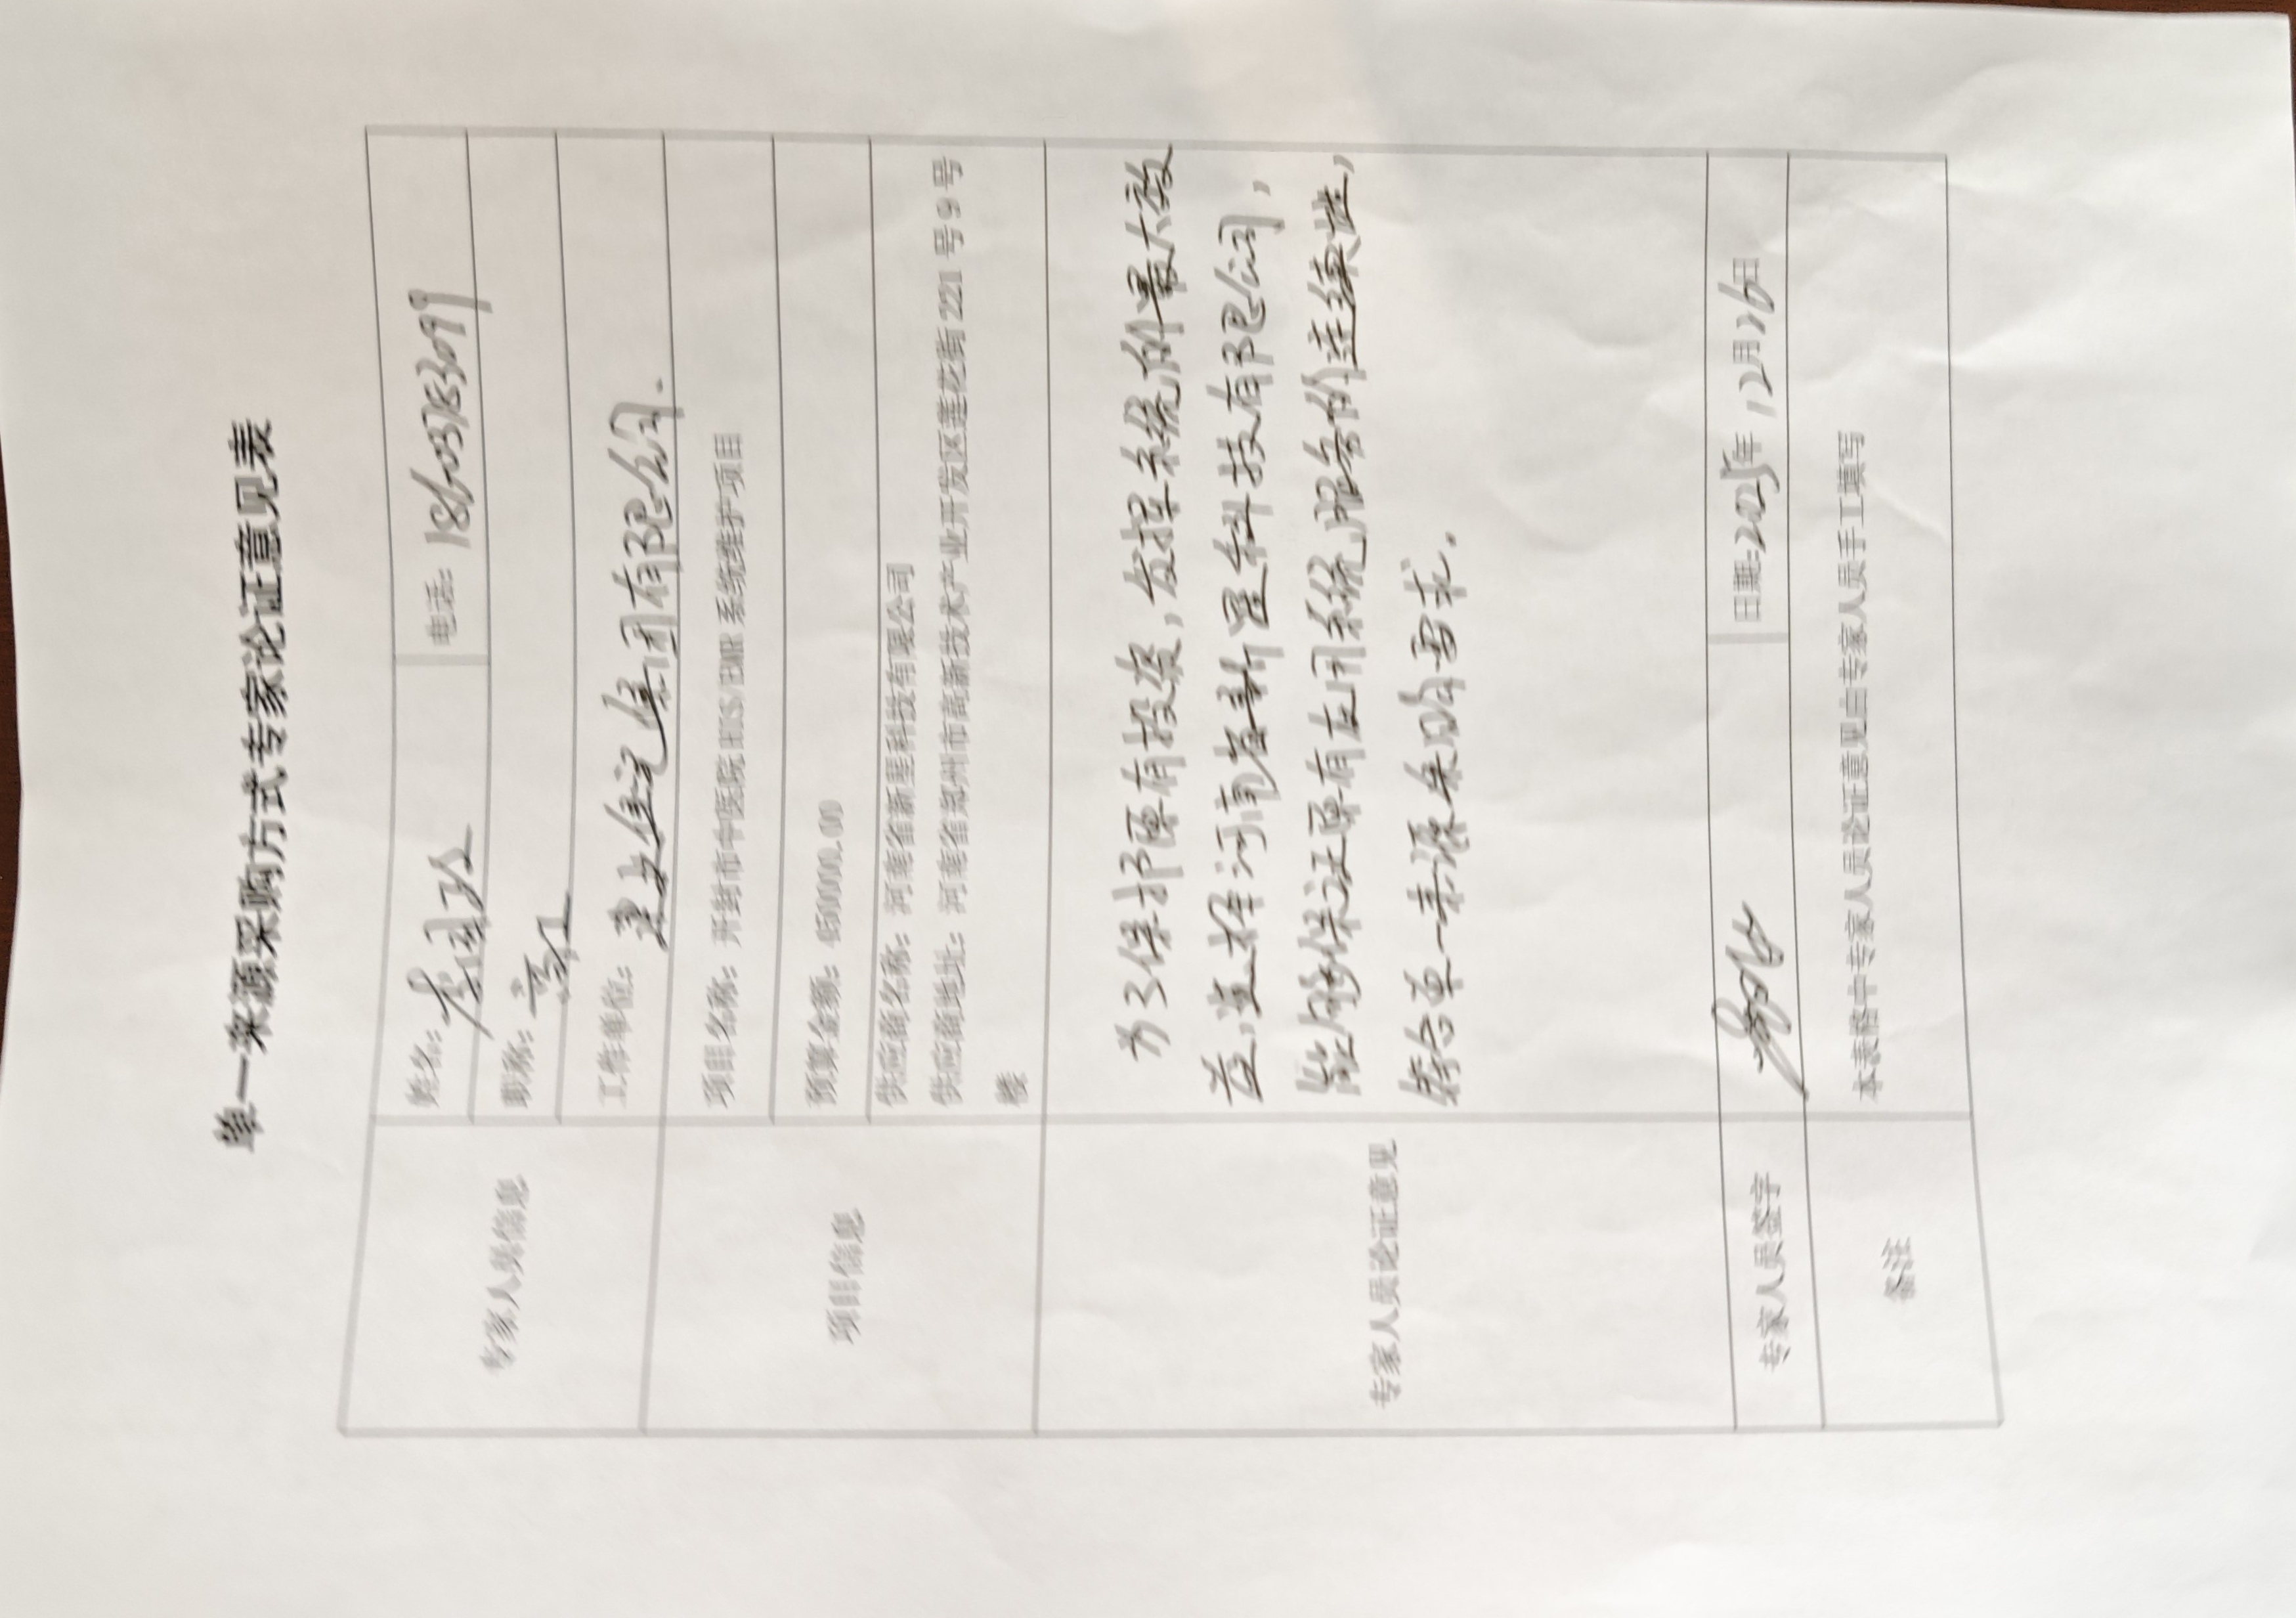 单一来源采购方式专家论证意见表
专家人员信息
姓名： 电话：18603783099
职称：高工
工作单位： 集团有限公司.
项目信息
项目名称：开封市中医院 HIS/EMR 系统维护项目
预算金额：450000.00
供应商名称：河南省新星科技有限公司
供应商地址：河南省郑州市高新技术产业开发区莲花街 221 号 9 号
楼
专家人员论证意见
为了保护原有投资，发挥系统的最大效
益，选择河南省新星科技有限公司，
能够保证原有应用系统服务的连续性，
符合单一来源采购需求。
专家人员签字
日期：2025年 12月26日
备注
本表格中专家人员论证意见由专家人员手工填写